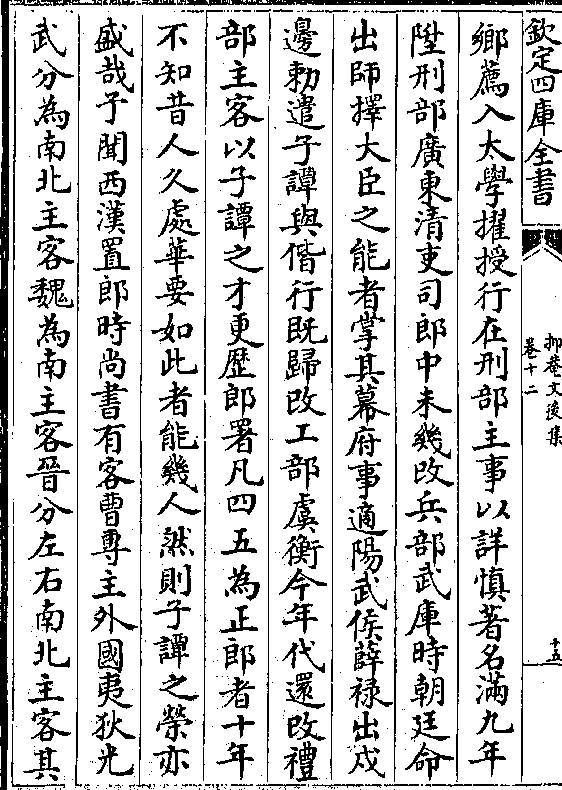 欽定四庫全書
抑菴文後集
卷十二
十五
鄉薦入太學擢授行在刑部主事以詳慎著名滿九年
陞刑部廣東清吏司郎中未幾改兵部武庫時朝廷命
出師擇大臣之能者掌其幕府事適陽武侯薛祿出戍
邊勅遣子譚與偕行既歸改工部虞衡今年代還改禮
部主客以子譚之才更歷郎署凡四五為正郎者十年
不知昔人久處華要如此者能幾人然則子譚之榮亦
盛哉予聞西漢置郎時尚書有客曹専主外國夷狄光
武分為南北主客魏為南主客晉分左右南北主客其